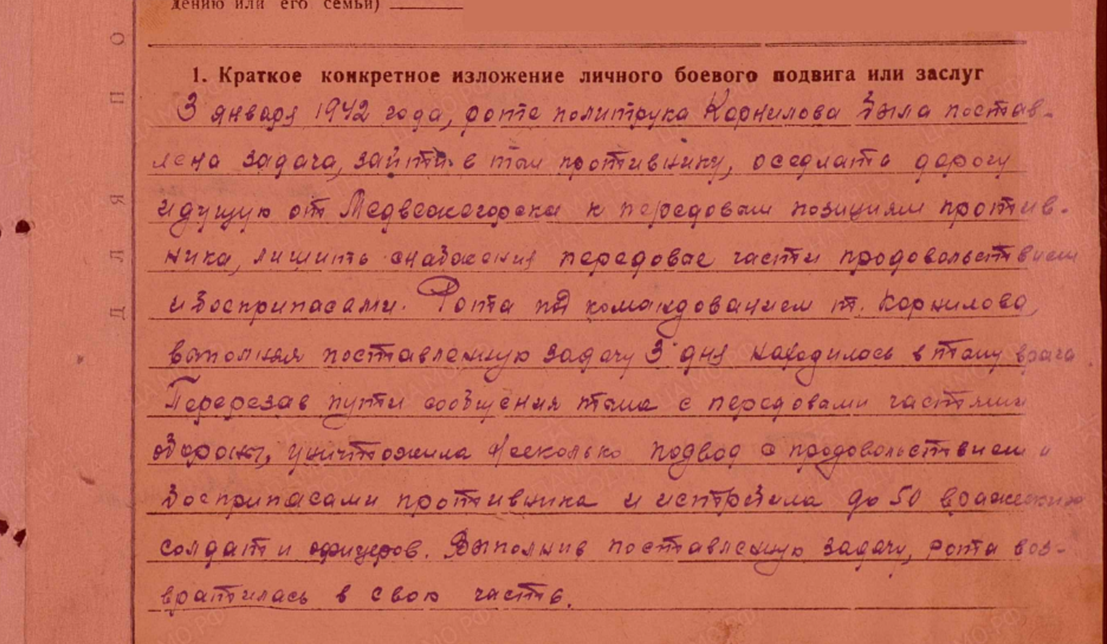 дению или его семьи)
1. Краткое конкретное изложение личного боевого подвига или заслуг
3 января 1942 года, роте политрука Корнилова была постав-
лена задача, зайти в тыл противнику, оседлать дорогу
идущую от Медвежегорска к передовым позициям против-
ника, лишить снабжения передовые части продовольствием
и боеприпасами. Рота под командованием т. Корнилова,
выполняя поставленную задачу 3 дня находилась в тылу врага
Перерезав пути сообщения тыла с передовыми частями
обороны, уничтожила несколько подвод с продовольствием и
боеприпасами противника и истребила до 50 вражеских
солдат и офицеров. Выполнив поставленную задачу, рота воз-
вратилась в свою часть.
ДЛЯ ПО